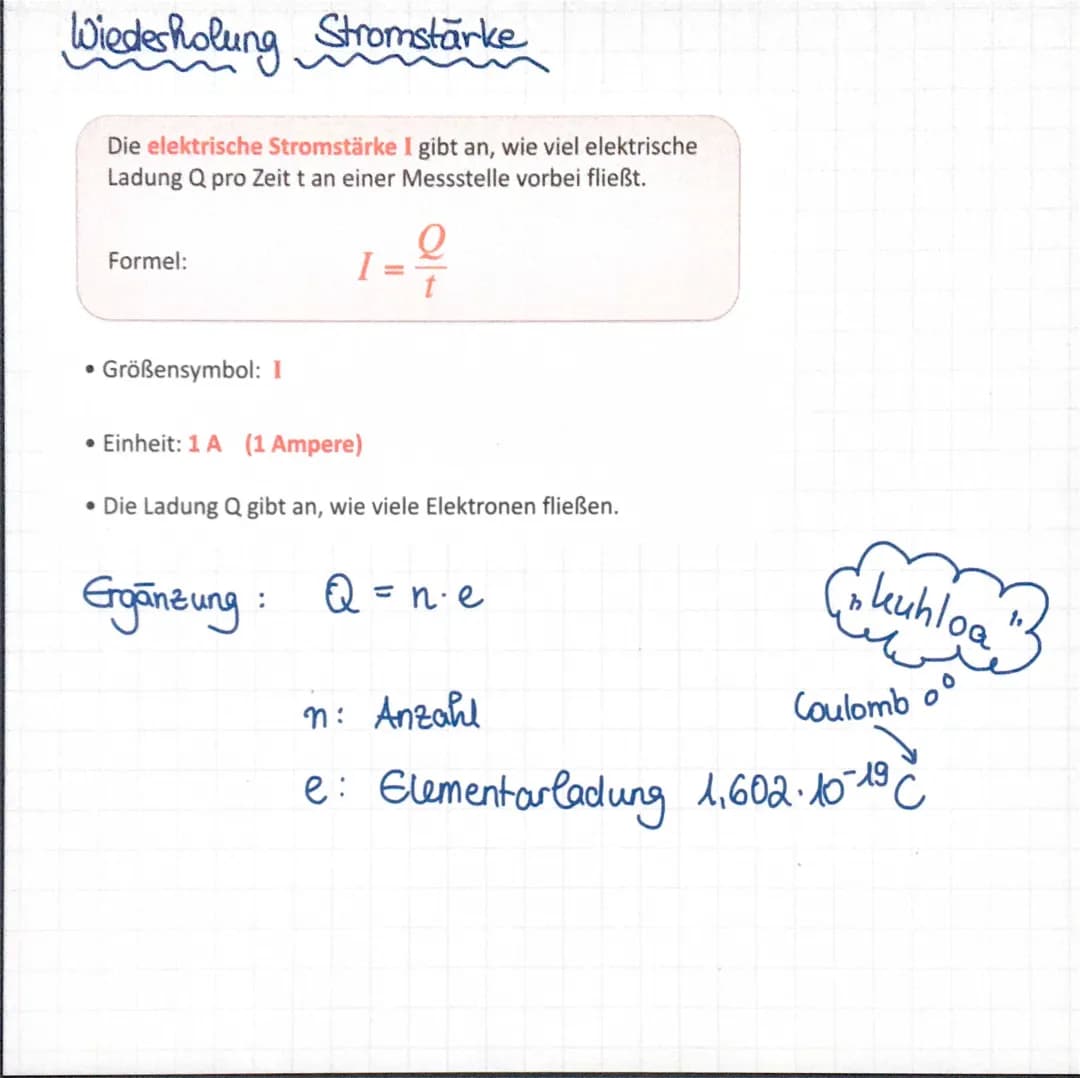 Wiederholung Stromstärke
Die elektrische Stromstärke I gibt an, wie viel elektrische
Ladung Q pro Zeit t an einer Messstelle vorbei fließt.
Formel: I = Q/t
• Größensymbol: I
• Einheit: 1 A (1 Ampere)
• Die Ladung Q gibt an, wie viele Elektronen fließen.
Ergänzung: Q = n · e
„kuhloa"
n: Anzahl
Coulomb
e: Elementarladung 1,602 · 10⁻¹⁹ C